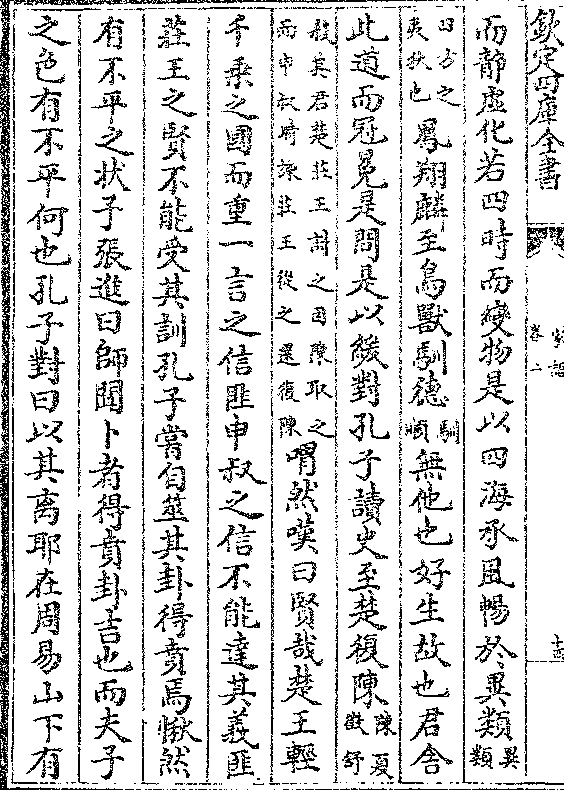 欽定四庫全書
家語
卷二
十四
而靜虛化若四時而變物是以四海承風暢於異類異類
四方之夷狄也鳳翔麟至鳥獸馴德馴順無他也好生故也君舍
此道而冠冕是問是以緩對孔子讀史至楚復陳陳夏徵舒
殺其君楚莊王討之因陳取之而申叔時諫莊王從之還復陳喟然嘆曰賢哉楚王輕
千乘之國而重一言之信匪申叔之信不能達其義匪
莊王之賢不能受其訓孔子嘗自筮其卦得賁焉愀然
有不平之狀子張進曰師聞卜者得賁卦吉也而夫子
之色有不平何也孔子對曰以其离耶在周易山下有